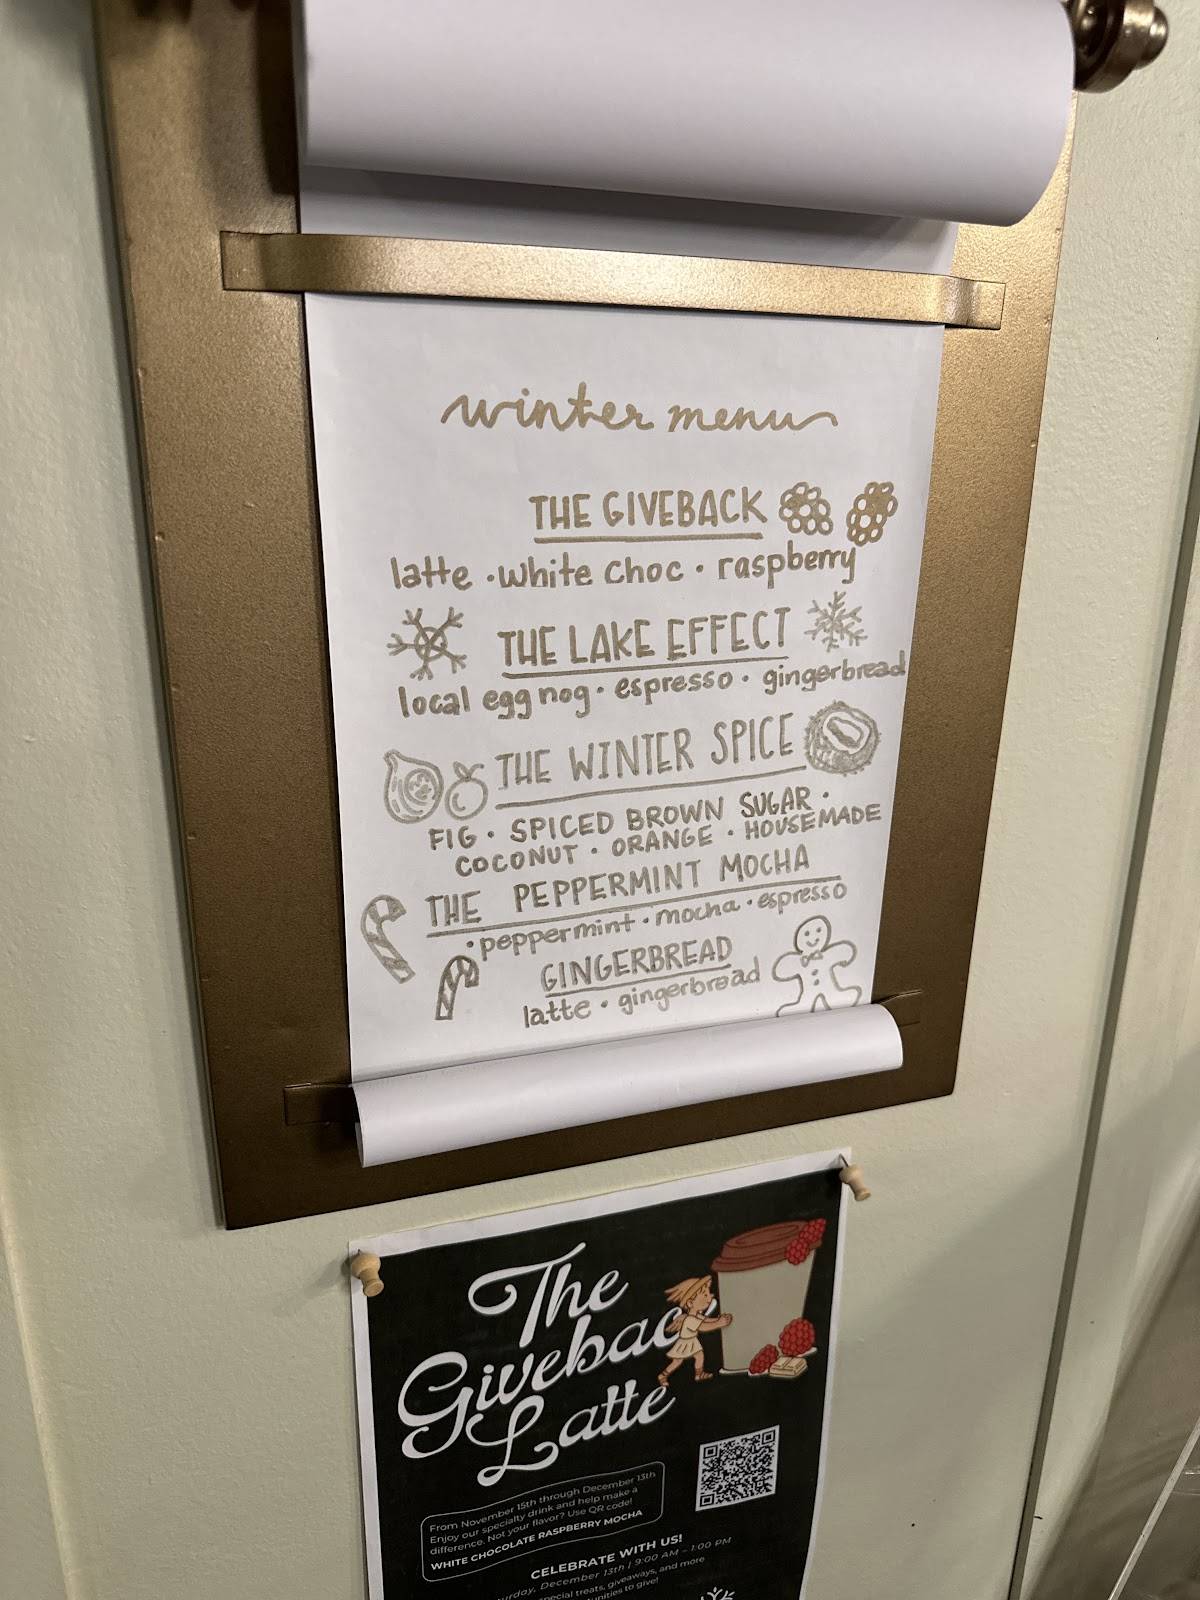 winter menu
THE GIVEBACK
latte · white choc · raspberry
THE LAKE EFFECT
local egg nog · espresso · gingerbread
THE WINTER SPICE
FIG · SPICED BROWN SUGAR ·
COCONUT · ORANGE · HOUSEMADE
THE PEPPERMINT MOCHA
· peppermint · mocha · espresso
GINGERBREAD
latte · gingerbread
The
Giveback
Latte
From November 15th through December 13th
Enjoy our specialty drink and help make a
difference. Not your flavor? Use QR code!
WHITE CHOCOLATE RASPBERRY MOCHA
CELEBRATE WITH US!
December 13th | 9:00 AM – 1:00 PM
treats, giveaways, and more
to give!